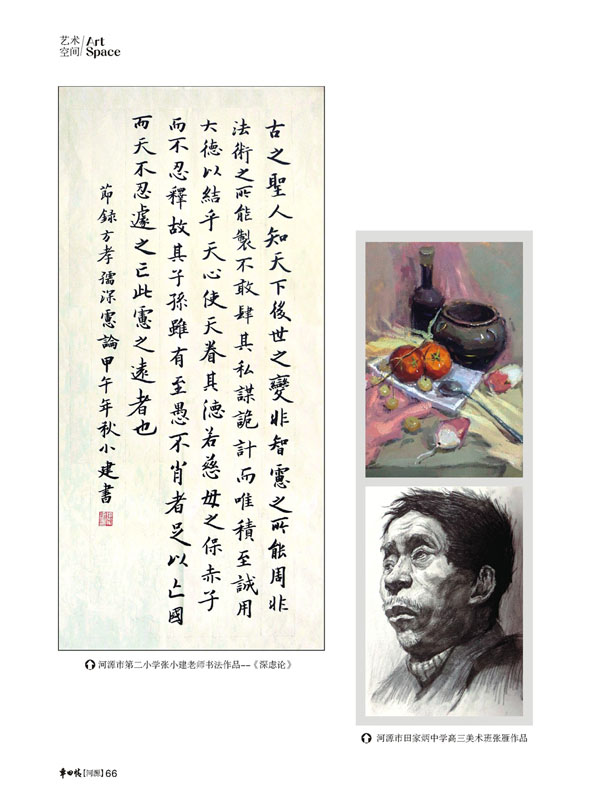 艺术 Art
空间 Space
古之聖人知天下後世之變非智慮之所能周非
法術之所能製不敢肆其私謀詭計而唯積至誠用
大德以結乎天心使天眷其德若慈母之保赤子
而不忍釋故其子孫雖有至愚不肖者足以亡國
而天不忍遽之亡此慮之遠者也
節錄方孝孺深慮論甲午年秋小建書
河源市第二小学张小建老师书法作品--《深虑论》
河源市田家炳中学高三美术班张雁作品
【河源】66